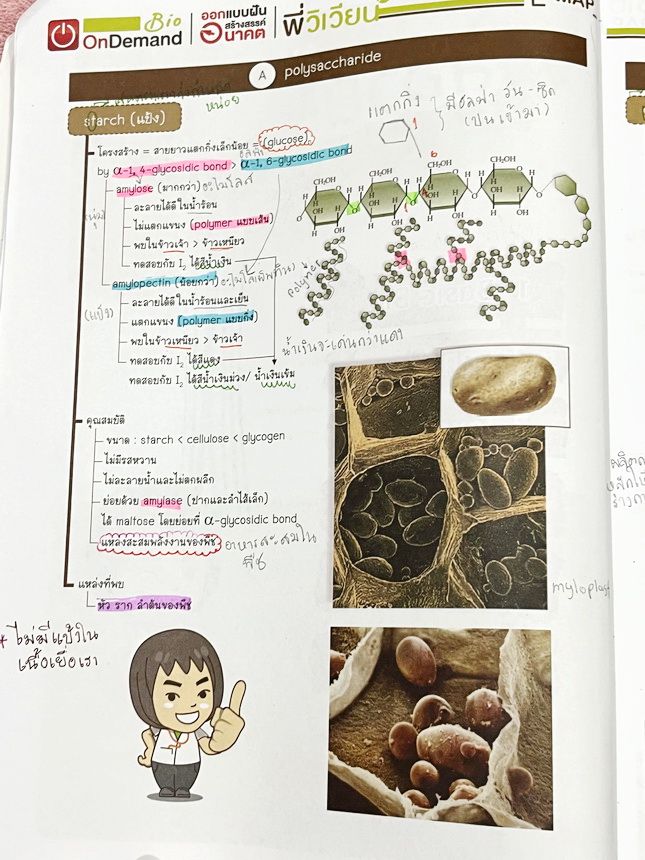 Bio
OnDemand
ออกแบบฝัน
สร้างสรรค์
อนาคต
พี่วิเวียน
MAP
A polysaccharide
หน่อย
starch (แป้ง)
แตกกิ่ง
โครงสร้าง = สายยาวแตกกิ่งเล็กน้อย = (glucose)
by α-1, 4-glycosidic bond > α-1, 6-glycosidic bond
amylose (มากกว่า) อะไมโลส
ละลายได้ดีในน้ำร้อน
ไม่แตกแขนง (polymer แบบเส้น)
พบในข้าวเจ้า > ข้าวเหนียว
ทดสอบกับ I₂ ได้สีน้ำเงิน
amylopectin (น้อยกว่า)
ละลายได้ดีในน้ำร้อนและเย็น
แตกแขนง (polymer แบบกิ่ง)
พบในข้าวเหนียว > ข้าวเจ้า
ทดสอบกับ I₂ ได้สีแดง
ทดสอบกับ I₂ ได้สีน้ำเงินม่วง/ น้ำเงินเข้ม
polymer
น้ำเงินจะเด่นกว่าแดง
1
6
CH₂OH
CH₂OH
CH₂OH
CH₂OH
คุณสมบัติ
ขนาด : starch < cellulose < glycogen
ไม่มีรสหวาน
ไม่ละลายน้ำและไม่ตกผลึก
ย่อยด้วย amylase (ปากและลำไส้เล็ก)
ได้ maltose โดยย่อยที่ α-glycosidic bond
แหล่งสะสมพลังงานของพืช อาหารสะสมใน
พืช
แหล่งที่พบ
หัว ราก ลำต้นของพืช
myloplast
ไม่มีแป้งใน
เนื้อเยื่อเรา